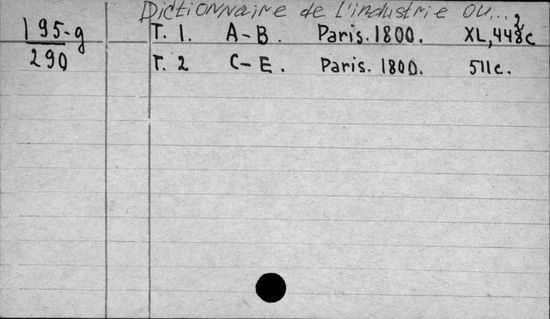 Dictionnaire de l'industrie ou...
195-g T. 1. A-B. Paris. 1800. XL, 448c
290 T. 2 C-E. Paris. 1800. 511c.